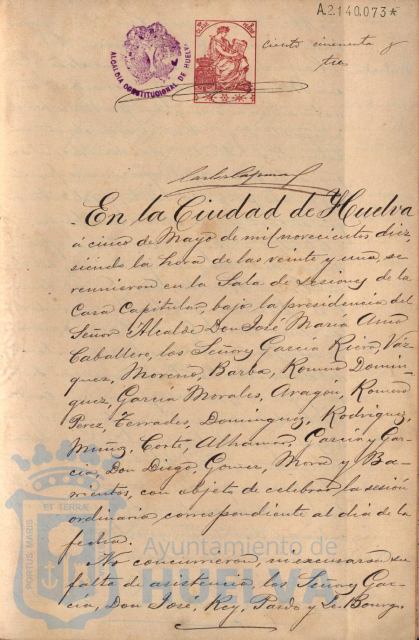 A.2140.073*
ALCALDIA CONSTITUCIONAL DE HUELVA
ciento cincuenta y
tres
En la Ciudad de Huelva
á cinco de Mayo de mil novecientos diez
siendo la hora de las veinte y una, se
reunieron en la Sala de Sesiones de la
Casa Capitular, bajo la presidencia del
Señor Alcalde Don José María Amo
Caballero, los Señores García Recio, Váz-
quez, Moreno, Barba, Romero Domín-
guez, García Morales, Aragón, Romero
Perez, Terrades, Dominguez, Rodriguez,
Muñiz, Corte, Alhamar, García y Gar-
cía, Don Diego, Gomez, Mora y Ba-
rrientos, con objeto de celebrar la sesión
ordinaria correspondiente al dia de la
fecha.
No concurrieron, ni excusaron su
falta de asistencia, los Señores Gar-
cía, Don José, Rey, Pardo y Le Bourg.
PORTUS MARIS
ET TERRAE
Ayuntamiento de
HUELVA